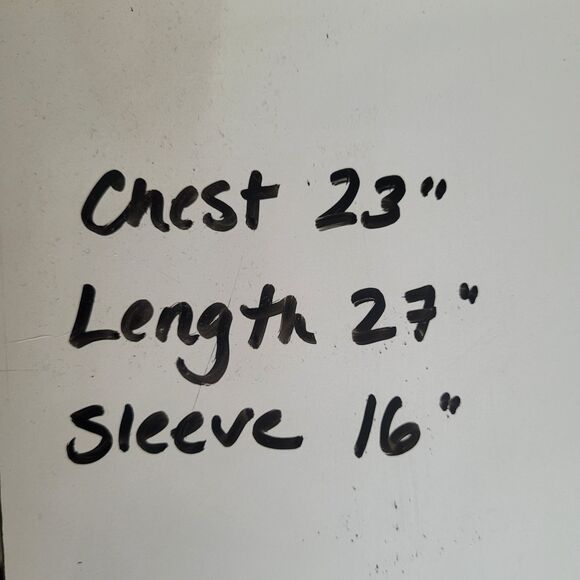 Chest 23"
Length 27"
Sleeve 16"